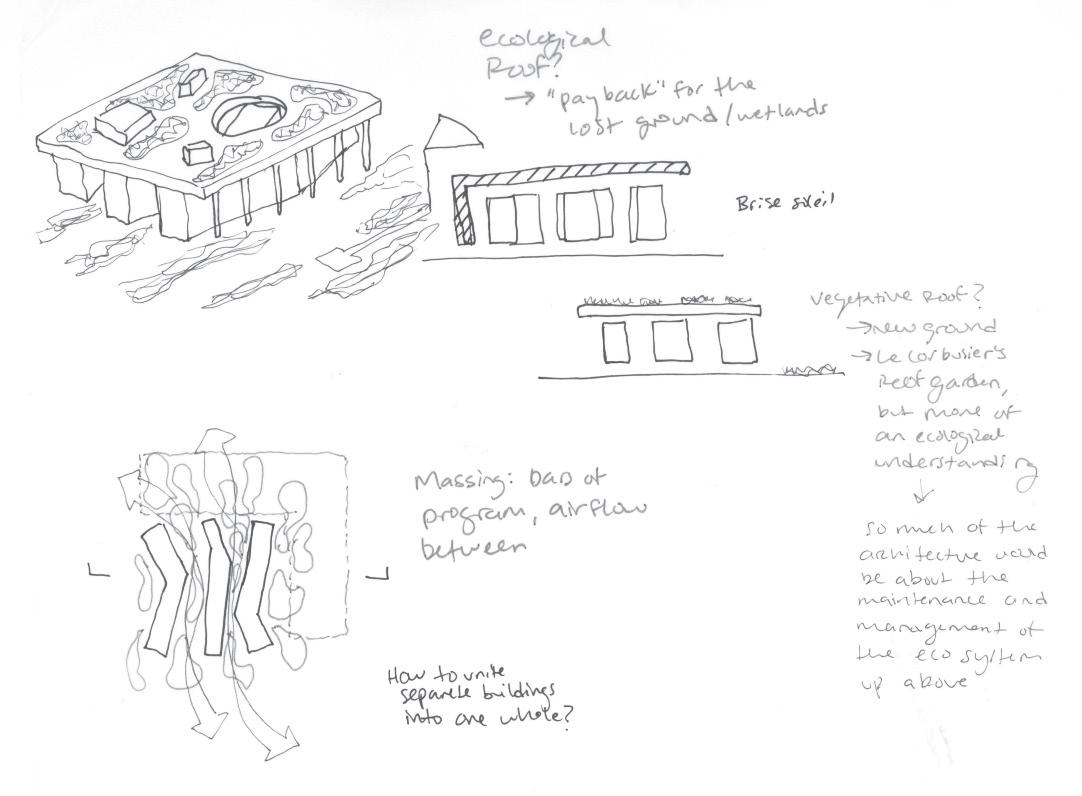 ecological
Roof?
→ "payback" for the
lost ground/wetlands
Brise soleil
Vegetative Roof?
→ new ground
→ Le Corbusier's
Roof garden,
but more of
an ecological
understanding
↓
so much of the
architecture would
be about the
maintenance and
management of
the eco system
up above
Massing: bars of
program, airflow
between
How to unite
separate buildings
into one whole?